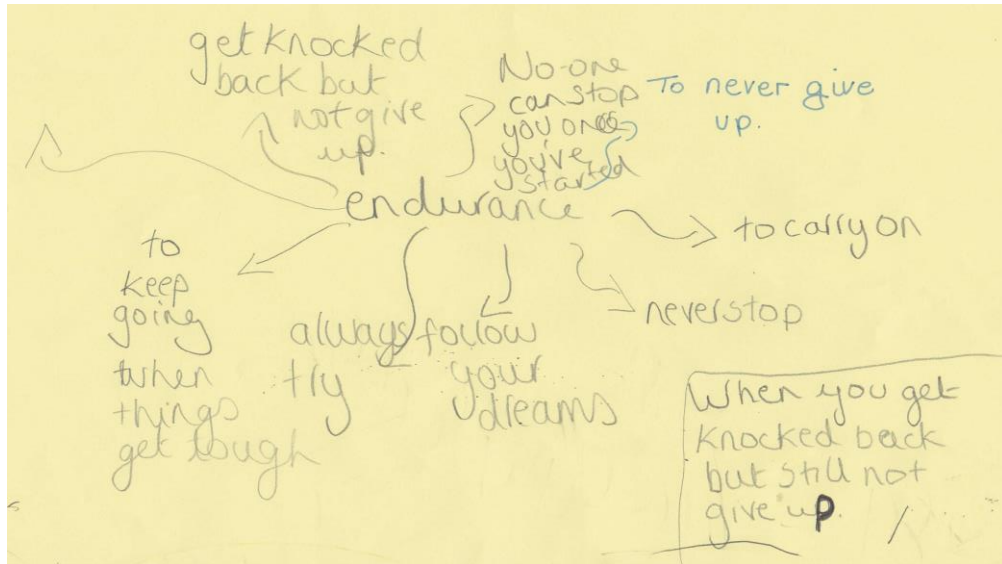 get knocked
back but
not give
up.
No-one
can stop
you, once
you've
started
To never give
up.
endurance
to carry on
never stop
to
keep
going
when
things
get tough
always
try
follow
your
dreams
When you get
knocked back
but still not
give up.